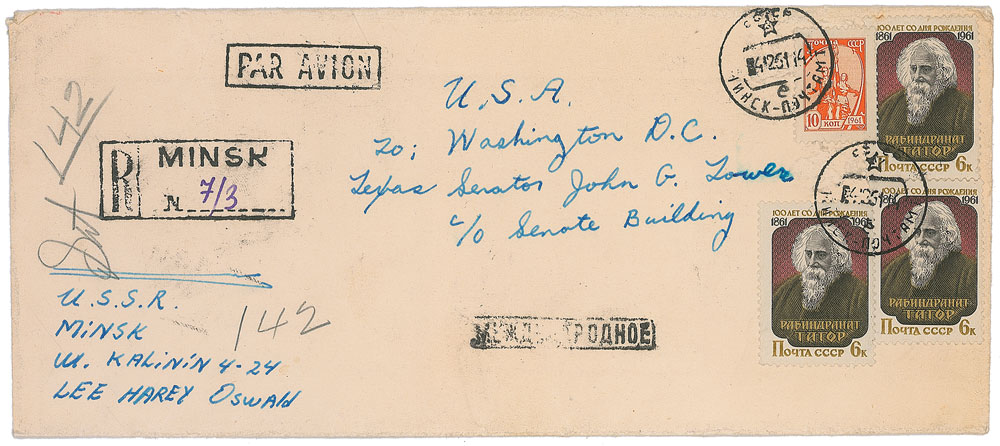 PAR AVION
142
R MINSK
N 7/3
U.S.S.R.
MINSK
ul. KALININ 4-24
LEE HARVEY Oswald
142
U.S.A.
To; Washington D.C.
Texas Senator John G. Tower
c/o Senate Building
МЕЖДУНАРОДНОЕ
СССР
МИНСК-ПОЧТАМТ
ПОЧТА СССР
10 коп 1961
100 ЛЕТ СО ДНЯ РОЖДЕНИЯ
1861 1961
РАБИНДРАНАТ
ТАГОР
6к
СССР
МИНСК-ПОЧТАМТ
100 ЛЕТ СО ДНЯ РОЖДЕНИЯ
1861 1961
РАБИНДРАНАТ
ТАГОР
ПОЧТА СССР 6к
100 ЛЕТ СО ДНЯ РОЖДЕНИЯ
1861
РАБИНДРАНАТ
ТАГОР
ПОЧТА СССР 6к